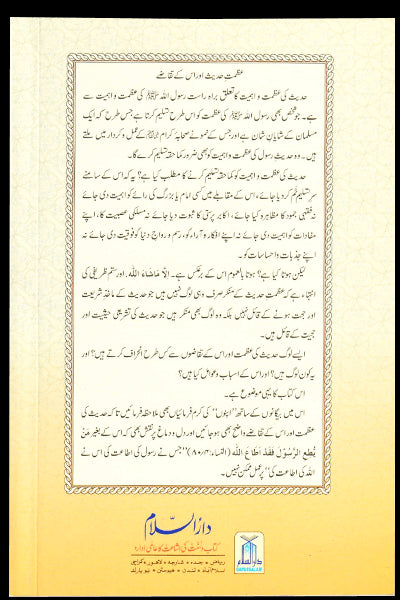 عظمتِ حدیث اور اس کے تقاضے
حدیث کی عظمت و اہمیت کا تعلق براہِ راست رسول اللہ ﷺ کی عظمت و اہمیت سے
ہے۔ جو شخص بھی رسول اللہ ﷺ کی عظمت کو اس طرح تسلیم کرتا ہے جس طرح کہ ایک
مسلمان کے شایانِ شان ہے اور جس کے نمونے صحابۂ کرام کے عمل و کردار میں ملتے
ہیں۔ وہ حدیثِ رسول کی عظمت و اہمیت کو بھی ضرور کما حقہ تسلیم کرے گا۔
حدیث کی عظمت و اہمیت کو کما حقہ تسلیم کرنے کا مطلب کیا ہے؟ یہ کہ اس کے سامنے
سرِ تسلیم خم کر دیا جائے، اس کے مقابلے میں کسی امام یا بزرگ کی رائے کو اہمیت دی جائے
نہ فقہی جمود کا مظاہرہ کیا جائے، اکابر پرستی کا ثبوت دیا جائے نہ مسلکی عصبیت کا، اپنے
مفادات کو اہمیت دی جائے نہ اپنے افکار و آراء کو، رسم و رواجِ دنیا کو فوقیت دی جائے نہ
اپنے جذبات و احساسات کو۔
لیکن ہوتا کیا ہے؟ ہوتا بالعموم اس کے برعکس ہے۔ اِلَّا مَا شَاءَ اللّٰہ۔ اور ستم ظریفی کی
انتہاء ہے کہ عظمتِ حدیث کے منکر صرف وہی لوگ نہیں ہیں جو حدیث کے ماخذِ شریعت
اور حجت ہونے کے قائل نہیں بلکہ وہ لوگ بھی منکر ہیں جو حدیث کی تشریعی حیثیت اور
حجیت کے قائل ہیں۔
ایسے لوگ حدیث کی عظمت اور اس کے تقاضوں سے کس طرح انحراف کرتے ہیں؟ اور
یہ کون لوگ ہیں؟ اور اس کے اسباب و عوامل کیا ہیں؟
اس کتاب کا یہی موضوع ہے۔
اس میں بیگانوں کے ساتھ ”اپنوں“ کی کرم فرمائیاں بھی ملاحظہ فرمائیں تاکہ حدیث کی
عظمت اور اس کے تقاضے واضح بھی ہو جائیں اور دل و دماغ پر نقش بھی کہ اس کے بغیر مَنْ
یُطِعِ الرَّسُوْلَ فَقَدْ اَطَاعَ اللّٰہَ (النساء: ۸۰/۴) ”جس نے رسول کی اطاعت کی اس نے
اللہ کی اطاعت کی“ پر عمل ممکن نہیں۔
دارالسلام
کتاب و سنت کی اشاعت کا عالمی ادارہ
ریاض • جدہ • شارجہ • لاہور • کراچی
اسلام آباد • لندن • ہیوسٹن • نیو یارک
دارالسلام
DARUSSALAM